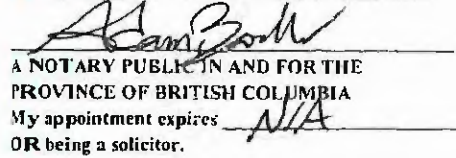 Adam
A NOTARY PUBLIC IN AND FOR THE
PROVINCE OF BRITISH COLUMBIA
My appointment expires N/A
OR being a solicitor.